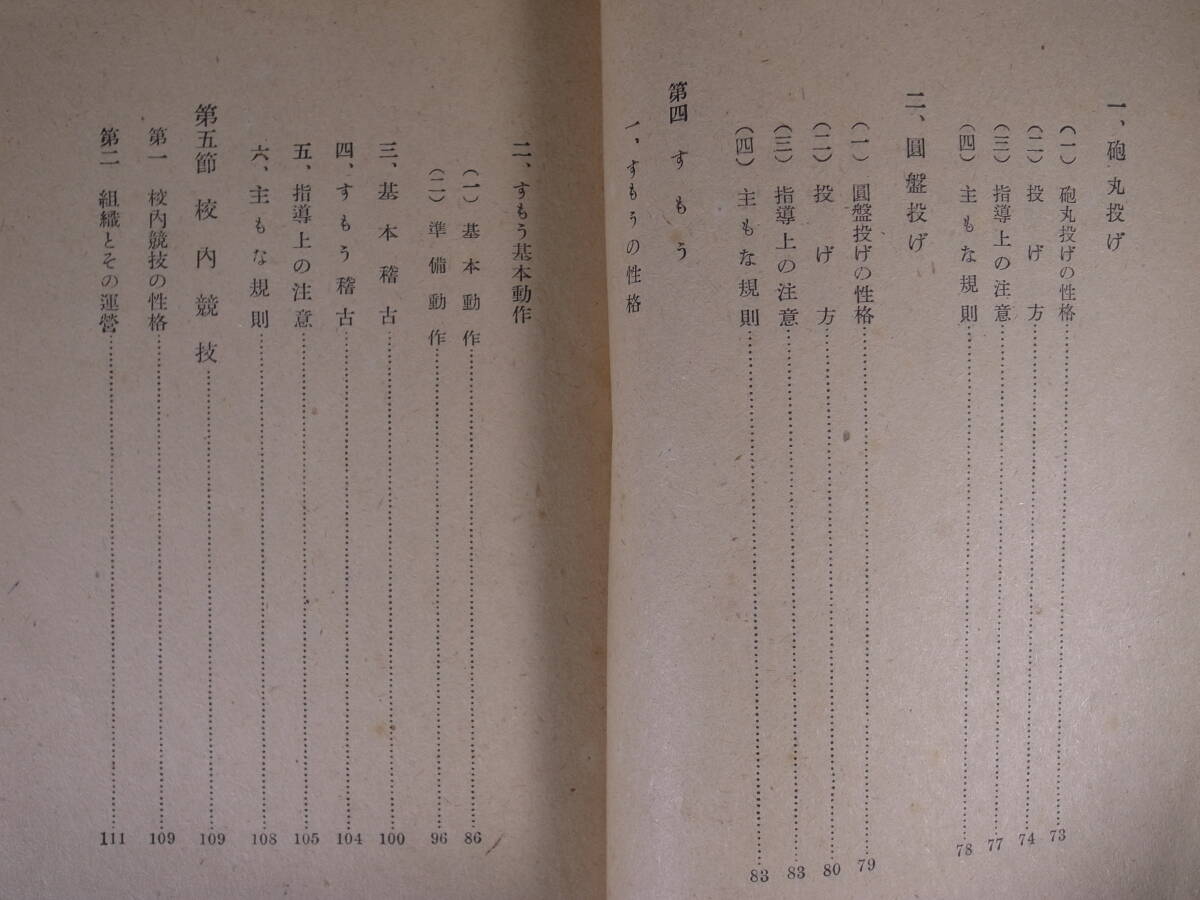 一、砲丸投げ
（一）砲丸投げの性格……73
（二）投げ方……74
（三）指導上の注意……77
（四）主もな規則……78
二、圓盤投げ
（一）圓盤投げの性格……79
（二）投げ方……80
（三）指導上の注意……83
（四）主もな規則……83
第四 すもう
一、すもうの性格
二、すもう基本動作
（一）基本動作……86
（二）準備動作……96
三、基本稽古……100
四、すもう稽古……104
五、指導上の注意……105
六、主もな規則……108
第五節 校内競技……109
第一 校内競技の性格……109
第二 組織とその運營……111